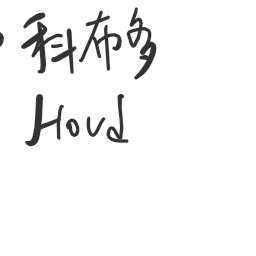 科布多
Hovd